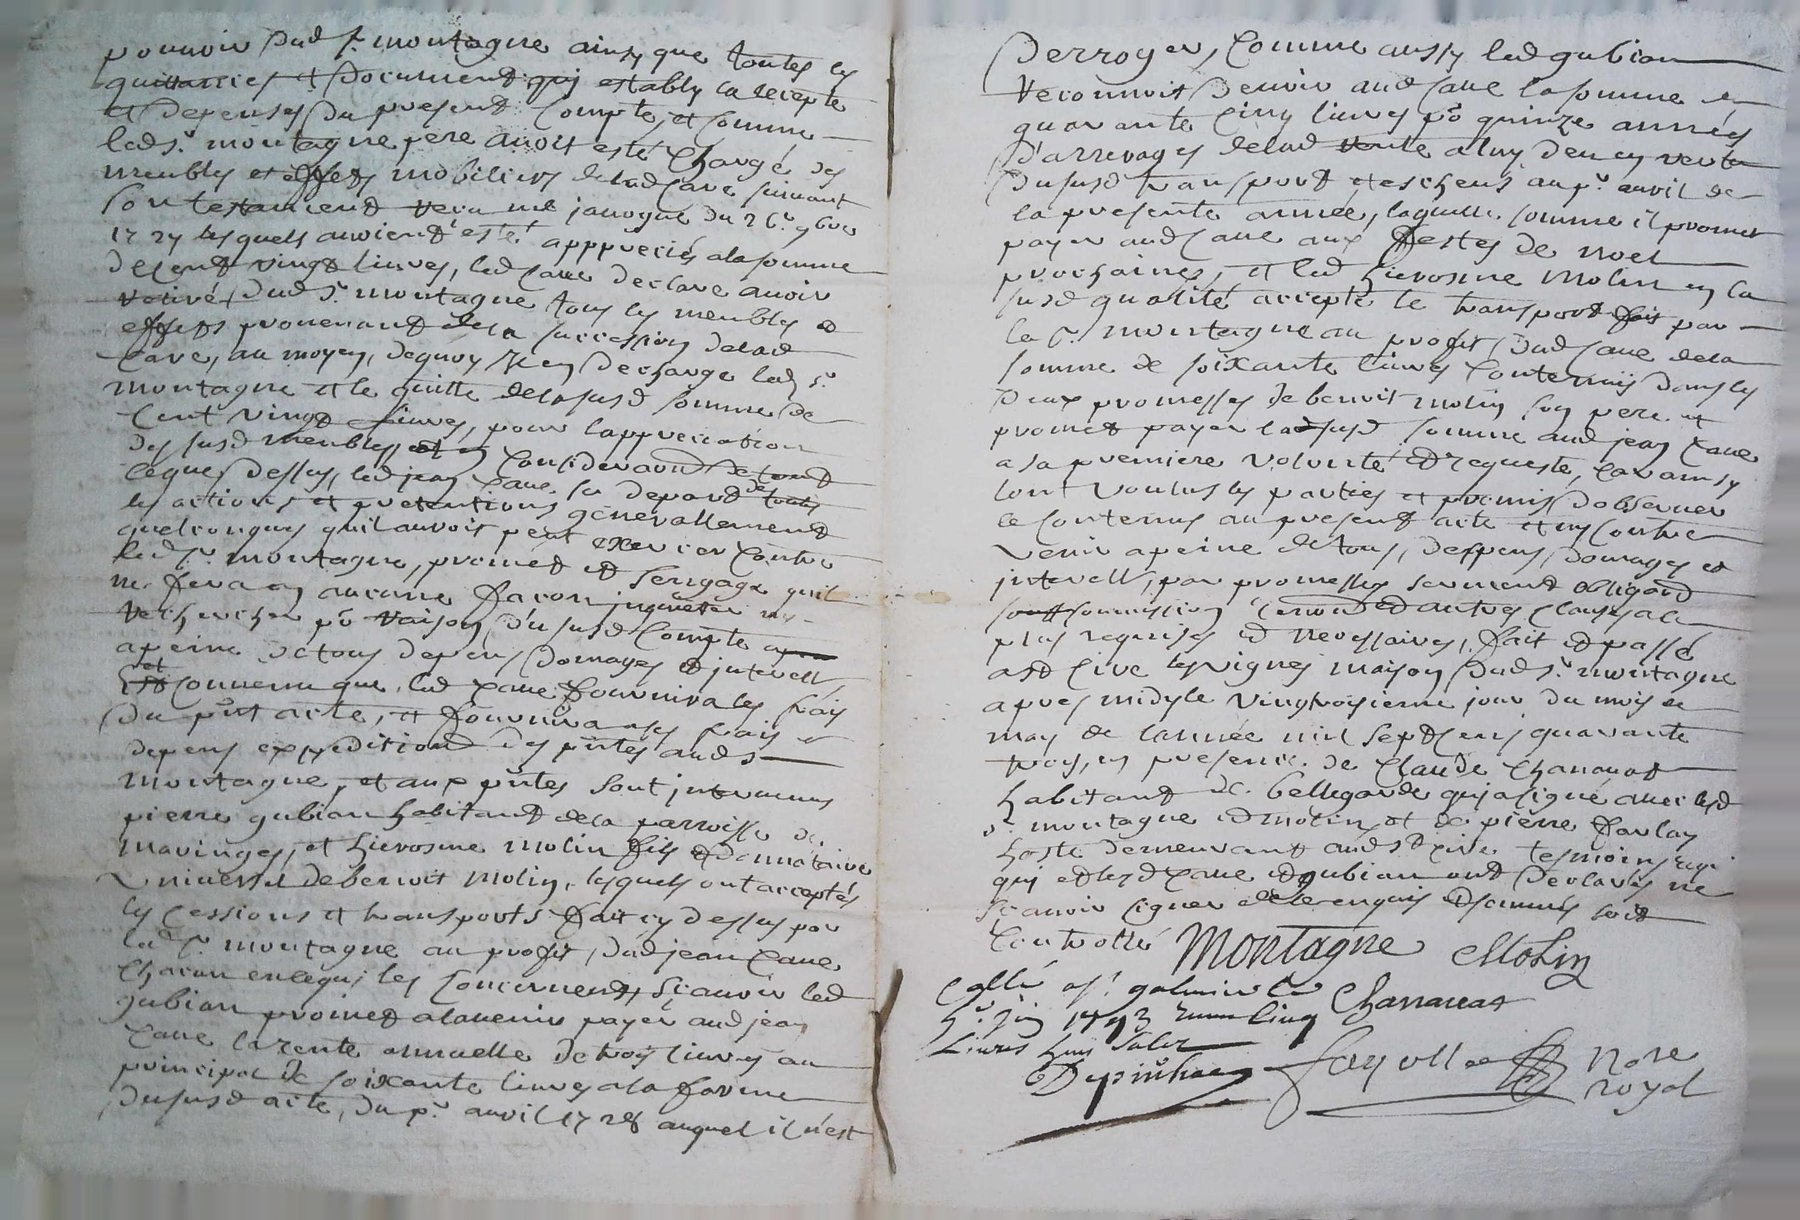 pouvoir dud sr. montagne ainsy que toutes les
quittances et documents qui establi la recepte
et depenses du present compte, et comme
led sr. montagne pere avoit esté chargé des
meubles et effets mobiliers delad cave suivant
son testament receu me janogue du 26e. 9bre
1727 lesquels avoient esté apppreciés ala somme
de cent vingt livres, led cave declare avoir
retiré, dud sr. montagne tous les meubles et
effets provenant dela succession delad
cave, au moyen, dequoy il en decharge led sr.
montagne et le quitte delasusd somme de
cent vingt livres, pour lappreciation
des susd meubles, et en consideration de tout
ceque dessus, led jean cave se depart de touts
les actions et pretentions generallement
quelconques quil auroit peut exercer contre
led sr. montagne, promet et sengage quil
ne fera en aucune facon inquieter ny
rechercher po raison, du susd compte
apeine detous depens domages et interests
et convenu que, led cave fournira les frais
du pnt acte, et fournira ases frais et
depens expedition des pntes aud sr
montagne, et aux pntes sont intervenus
pierre gubian habitant dela parroisse de
maringes, et hierosme molin fils et donnataire
universel de benoit molin, lesquels ont acceptés
les cessions et transports fait cy dessus par
led sr. montagne au profit, dud jean cave
chacun en cequi les concernent, sçavoir led
gubian promet alavenir payer aud jean
cave la rente annuelle de trois livres au
principal de soixante livres ala forme
du susd acte, du pr. avril 1728 auquel il n'est
derroger, comme aussy led gubian
reconnoit devoir aud cave la somme de
quarante cinq livres po quinze années
d'arrerages delad rente aluy deu en vertu
du susd transport et escheus au pr. avril de
la presente année, laquelle somme il promet
payer aud cave aux festes de noel
prochaines, et led hierosme molin en la
susd qualité accepte le transport fait par
le sr. montagne au profit, dud cave dela
somme de soixante livres contenüs dans les
deux promesses de benoit molin son pere et
promet payer ladsusd somme aud jean cave
a sa premiere volonté et requeste, car ainsy
lont voulus les parties et promis d'observer
le contenus au present acte et ny contre
venir apeine de tous, despens, domages et
interests, par promesses serment obligaõns
soumissions renonãons et autres clauses ale
plus requises et necessaires, fait et passé
a st cire les vignes maison dud sr. montagne
apres midy le vingtroisieme jour du mois de
may de lannée mil sept cens quarante
trois, en presence de Claude Chanavat
habitant de bellegarde qui asigné avec led
sr. montagne et molin, et de pierre farlay
hoste demeurant aud st cire tesmoins
qui et led cave et gubian ont declarés ne
sçavoir signer de ce enquis et sommés soit
Controllé Montagne Molin
Collé a st galmier le
Chanavat
1743 cinq
Livres huit sols
Nore
royal